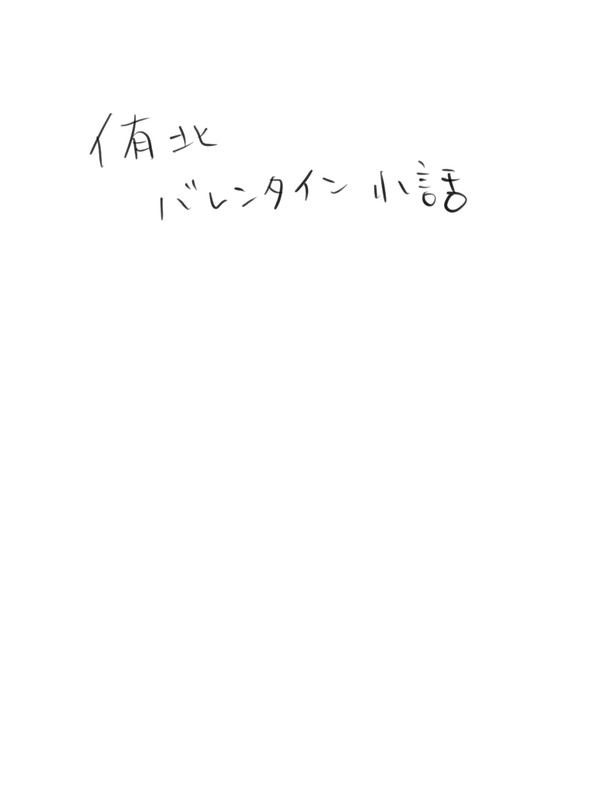 侑北
バレンタイン小話